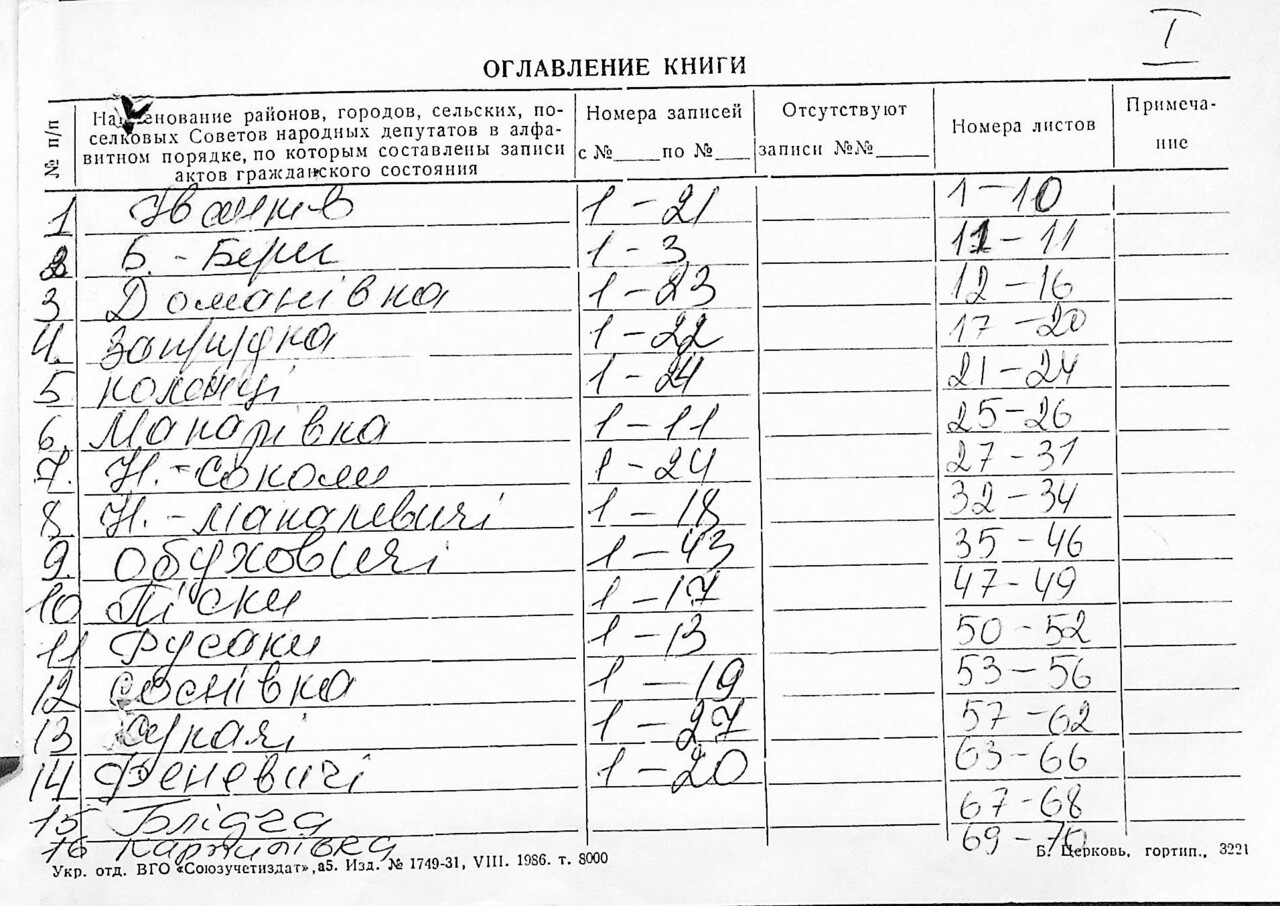 I
ОГЛАВЛЕНИЕ КНИГИ
№ п/п
Наименование районов, городов, сельских, по-
селковых Советов народных депутатов в алфа-
витном порядке, по которым составлены записи
актов гражданского состояния
Номера записей
с №____ по №___
Отсутствуют
записи №№_____
Номера листов
Примеча-
ние
1 Іванків 1 – 21 1 – 10
2 Б. - Береги 1 – 3 11 – 11
3 Доманівка 1 – 23 12 – 16
4. Запрудка 1 – 22 17 – 20
5 Коленці 1 – 24 21 – 24
6. Макарівка 1 – 11 25 – 26
7. Н. - Соколи 1 – 24 27 – 31
8 Н. - Макалевичі 1 – 18 32 – 34
9. Обуховичі 1 – 43 35 – 46
10 Піски 1 – 17 47 – 49
11 Русаки 1 – 13 50 – 52
12 Соснівка 1 – 19 53 – 56
13 Сукачі 1 – 27 57 – 62
14 Феневичі 1 – 20 63 – 66
15 Блідча 67 – 68
16 Карпилівка 69 – 70
Укр. отд. ВГО «Союзучетиздат», а5. Изд. № 1749-31, VIII. 1986. т. 8000
Б. Церковь, гортип., 3221